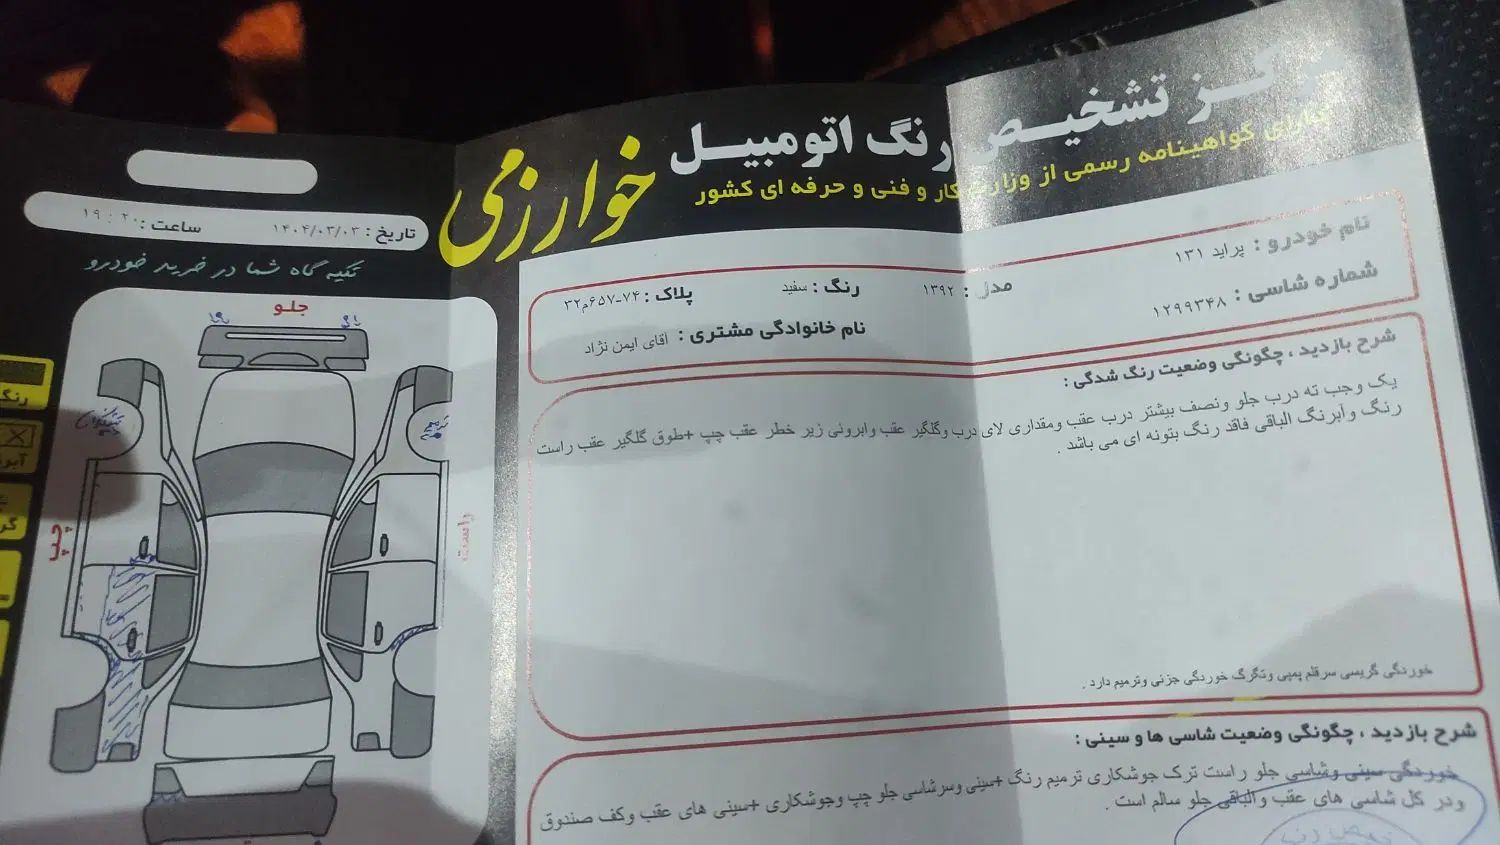 مرکز تشخیص رنگ اتومبیل
خوارزمی
دارای گواهینامه رسمی از وزارت کار و فنی و حرفه ای کشور
تاریخ : ۱۴۰۴/۰۳/۰۳ ساعت : ۲۰ : ۱۹
تکیه گاه شما در خرید خودرو
نام خودرو : پراید ۱۳۱ مدل : ۱۳۹۲ رنگ : سفید پلاک : ۷۴-۶۵۷م۳۲
شماره شاسی : ۱۲۹۹۳۴۸ نام خانوادگی مشتری : اقای ایمن نژاد
شرح بازدید ، چگونگی وضعیت رنگ شدگی :
یک وجب ته درب جلو ونصف بیشتر درب عقب ومقداری لای درب وگلگیر عقب وابروئی زیر خطر عقب چپ +طوق گلگیر عقب راست
رنگ وآبرنگ الباقی فاقد رنگ بتونه ای می باشد .
خوردگی گریسی سرقلم پمپی وتگرگ خوردگی جزئی وترمیم دارد .
شرح بازدید ، چگونگی وضعیت شاسی ها و سینی :
خوردگی سینی وشاسی جلو راست ترک جوشکاری ترمیم رنگ +سینی وسرشاسی جلو چپ وجوشکاری +سینی های عقب وکف صندوق
ودر کل شاسی های عقب والباقی جلو سالم است .
جلو
راست
چپ
رنگ